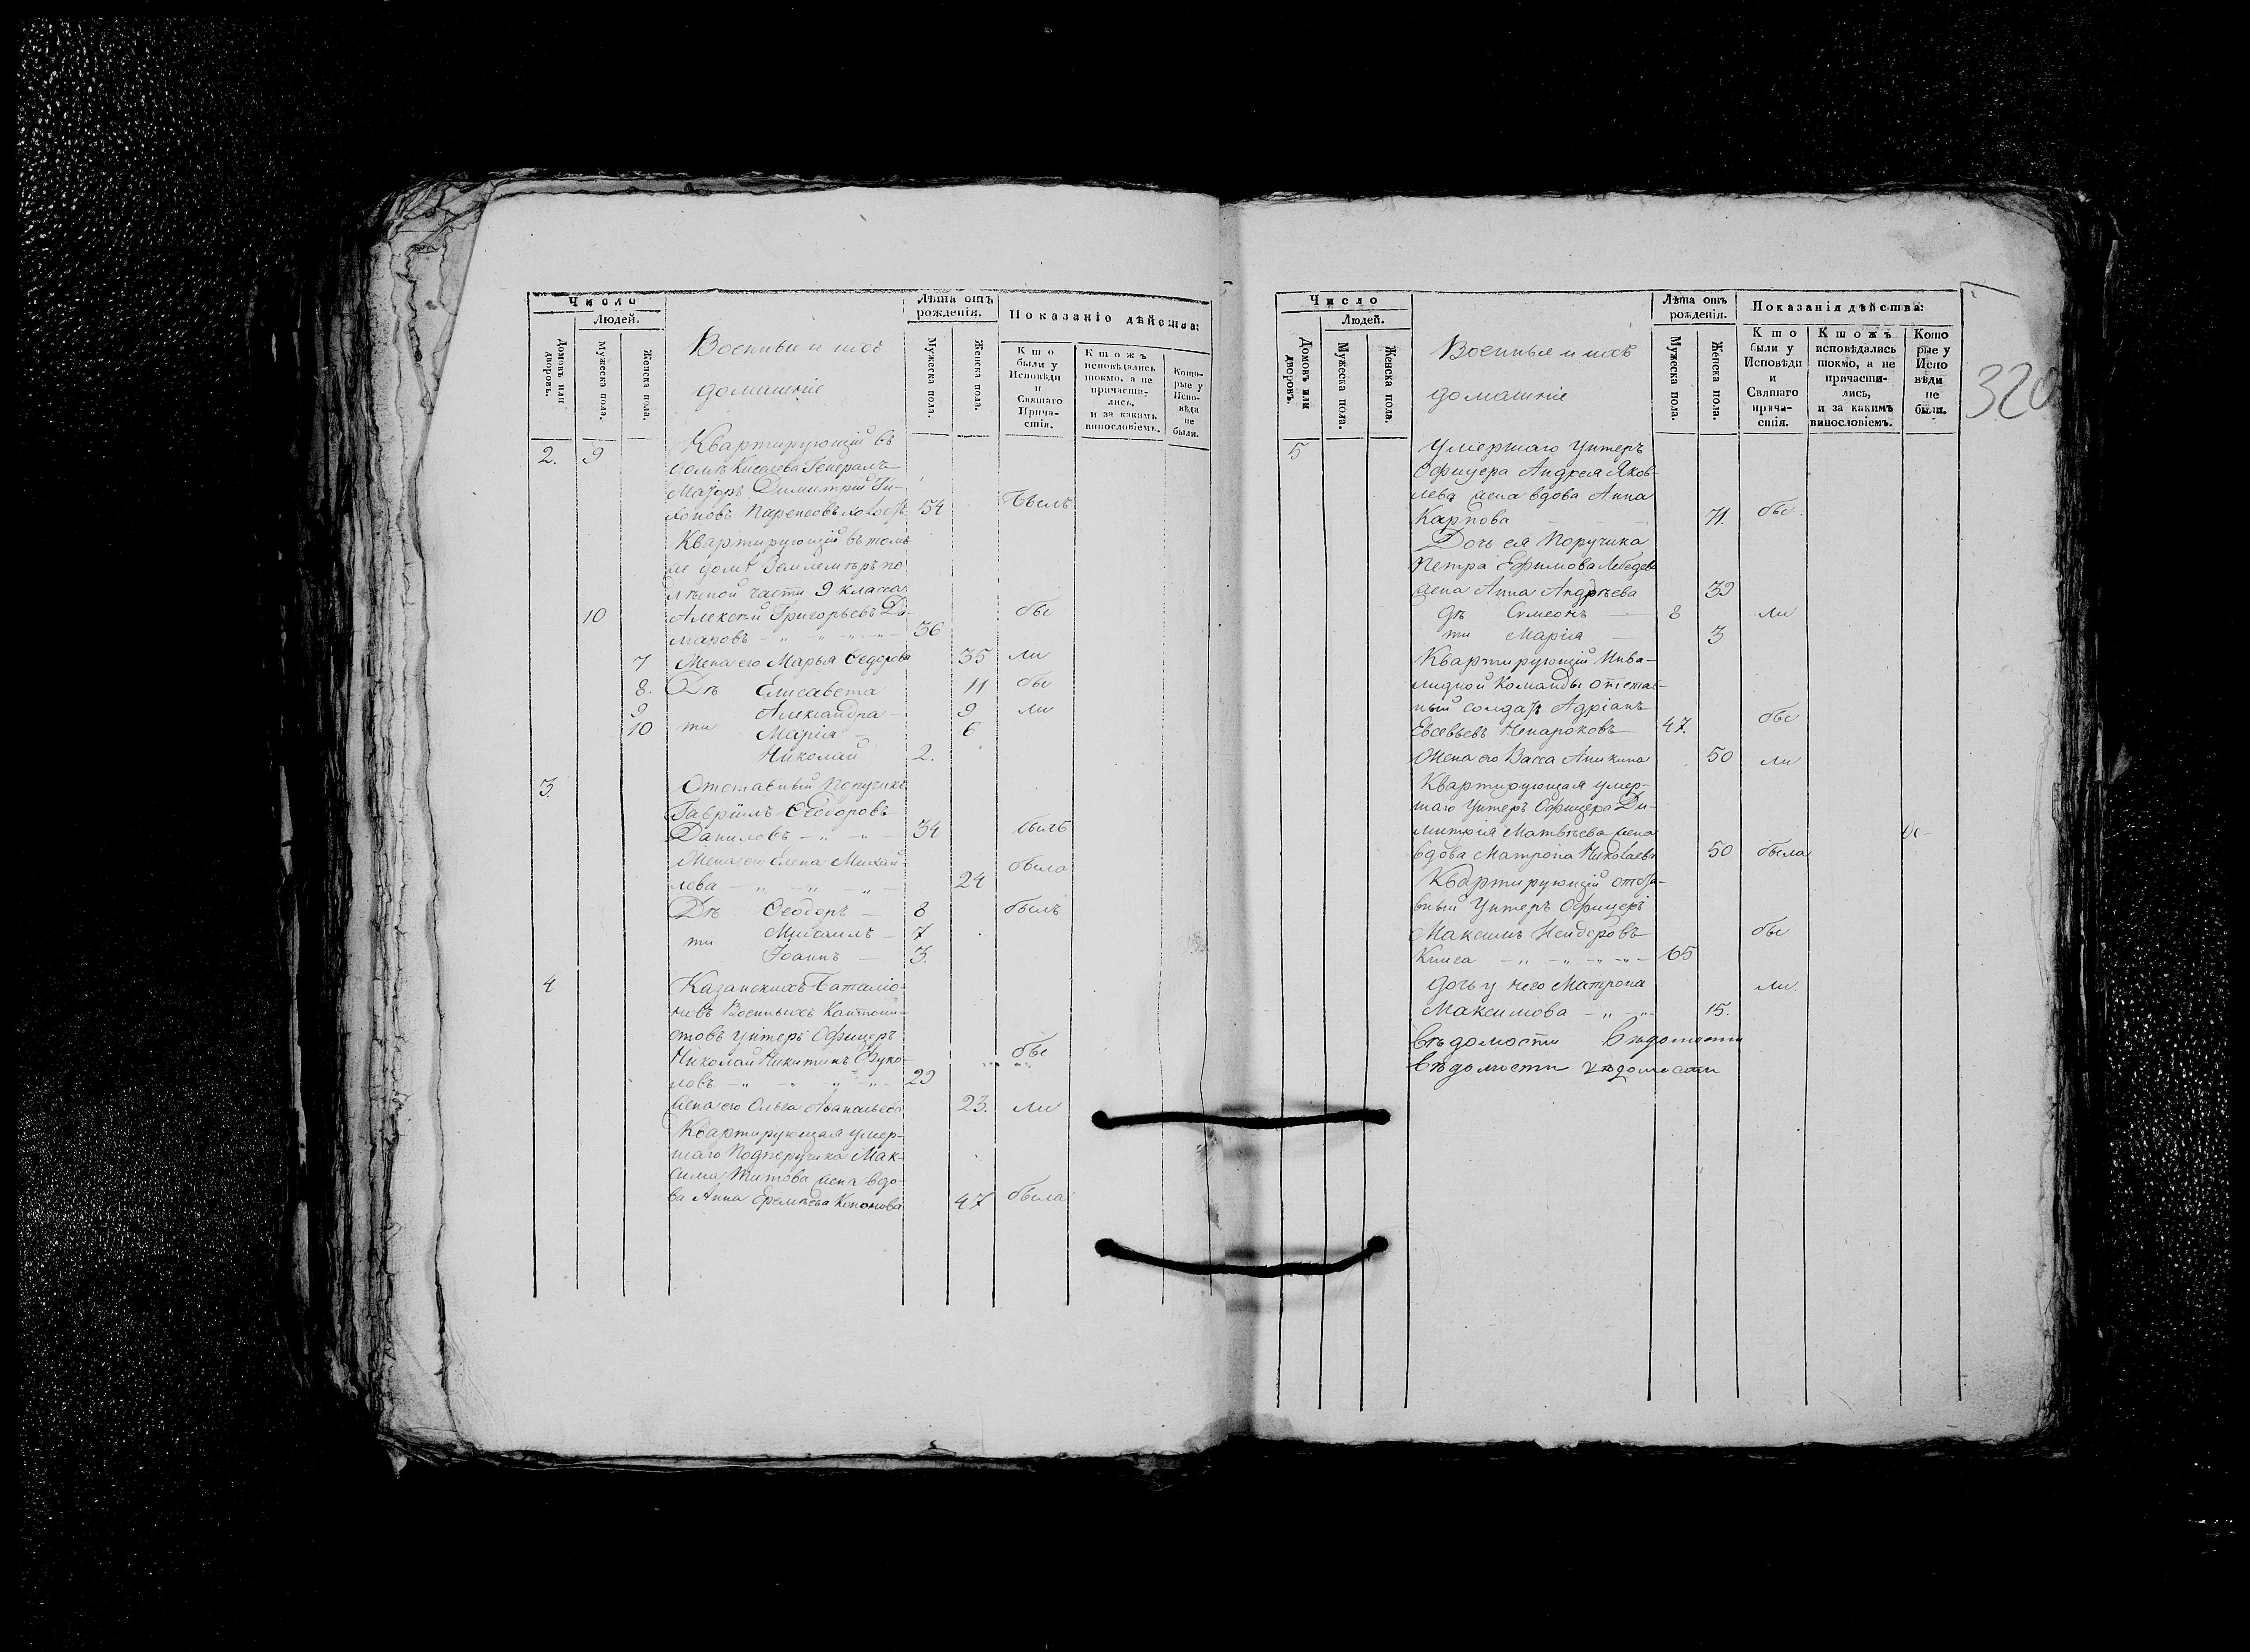 Число
Людей.
Домовъ или дворовъ.
Мужеска пола.
Женска пола.
Военные и ихъ
домашніе
Лѣта отъ рожденія.
Мужеска пола.
Женска пола.
Показаніе дѣйства:
Кто были у Исповѣди и Святаго Причастія.
Ктожъ исповѣдались токмо, а не причастились, и за какимъ винословіемъ.
Которые у Исповѣди не были.
2. 9 Квартирующій въ
домѣ Киселева Генералъ
Маіоръ Димитрій Ти-
хоновъ Паренсовъ холостъ 54 Былъ
Квартирующій въ томъ
же домѣ Землемѣръ по
лѣсной части 9 класса
10 Алексѣй Григорьевъ Да- бы
маровъ 36
7 Жена его Марья Ѳедорова 35 ли
8. Дѣ Елисавета 11 бы
9 Александра 9 ли
10 ти Марія 6
Николай 2.
3. Отставный Поручикъ
Гавріилъ Ѳеодоровъ
Даниловъ 34 былъ
Жена его Елена Михай-
лова 24 была
Дѣ Ѳеодоръ 8 былъ
ти Михаилъ 7
Іоаннъ 3.
4 Казанскихъ Баталіо-
новъ Военныхъ Кантони-
стовъ Унтеръ Офицеръ
Николай Никитинъ Вуко- бы
ловъ 29
Жена его Ольга Аѳанасьева 23. ли
Квартирующая умер-
шаго Подпоручика Мак-
сима Титова жена вдо-
ва Анна Еремѣева Кононова 47 была
Число
Людей.
Домовъ или дворовъ.
Мужеска пола.
Женска пола.
Военные и ихъ
домашніе
Лѣта отъ рожденія.
Мужеска пола.
Женска пола.
Показанія дѣйства:
Кто были у Исповѣди и Святаго причастія.
Ктожъ исповѣдались токмо, а не причастились, и за какимъ винословіемъ.
Которые у Исповѣди не были.
320
5 Умершаго Унтеръ
Офицера Андрея Яков-
лева жена вдова Анна
Карпова 71. бы
Дочь ея Поручика
Петра Ефимова Лебедева
жена Анна Андрѣева 39
дѣ Симеонъ 8 ли
ти Марія 3
Квартирующій Инва-
лидной Команды отстав-
ный солдатъ Адріанъ
Евсевьевъ Ненароковъ 47. бы
Жена его Васса Аникина 50 ли
Квартирующая умер-
шаго Унтеръ Офицера Ди-
митрія Матвѣева жена
вдова Матрона Николаева 50 была
Квартирующій отста-
вный Унтеръ Офицеръ
Максимъ бы
65
дочь у него Матрона ли.
Максимова 15.
вѣдомости вѣдомости
вѣдомости вѣдомости